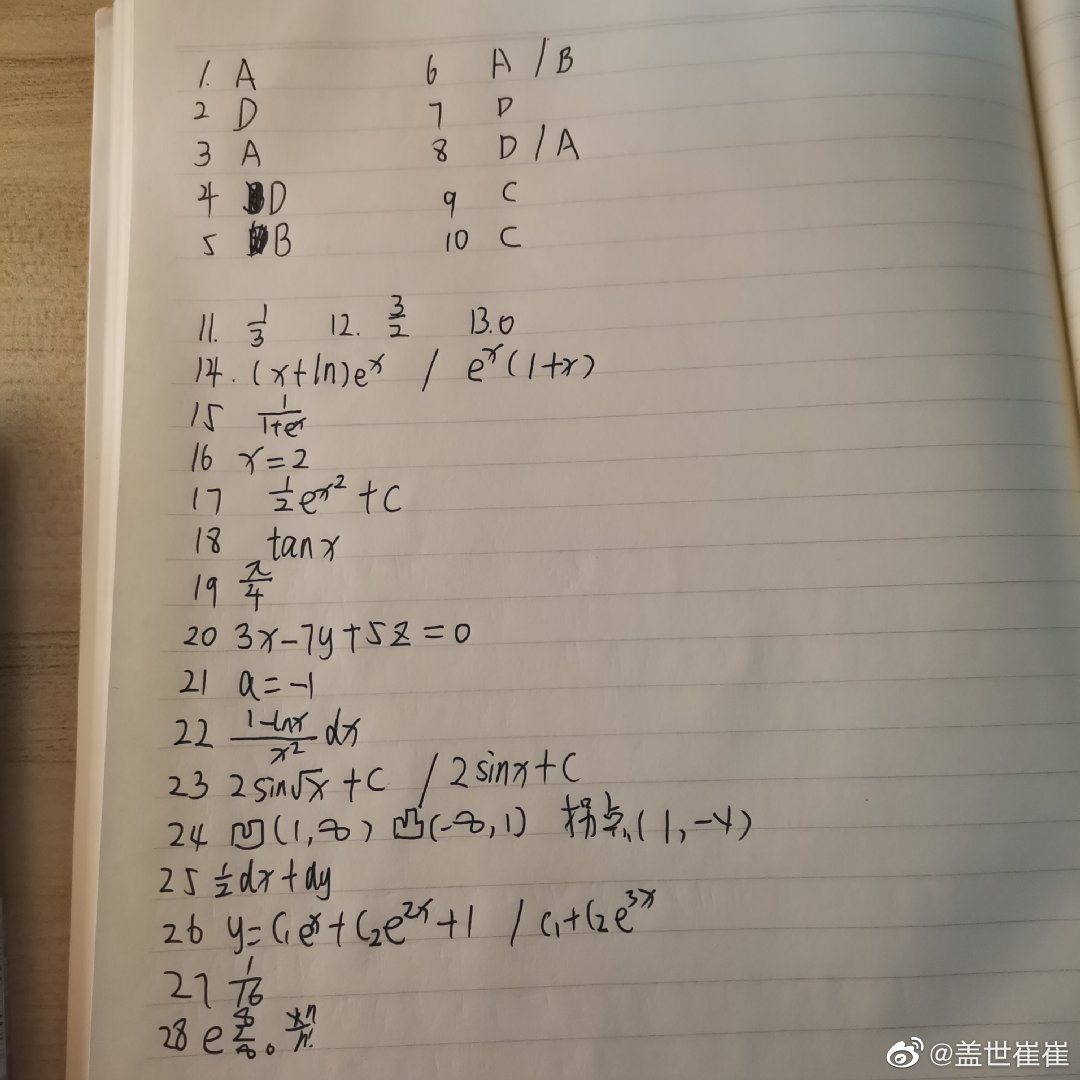 1. A 6 A / B
2 D 7 D
3 A 8 D / A
4 D 9 C
5 B 10 C
11. 1/3 12. 3/2 13. 0
14. (x+ln)eˣ / eˣ(1+x)
15 1/(1+eˣ)
16 x=2
17 1/2 e^x² + C
18 tanx
19 π/4
20 3x-7y+5z=0
21 a=-1
22 (1-lnx)/x² dx
23 2sin√x + C / 2sinx+C
24 凹(1,∞) 凸(-∞,1) 拐点(1,-4)
25 1/2dx+dy
26 y=C₁eˣ+C₂e²ˣ+1 / C₁+C₂e³ˣ
27 1/16
28 e
@盖世崔崔